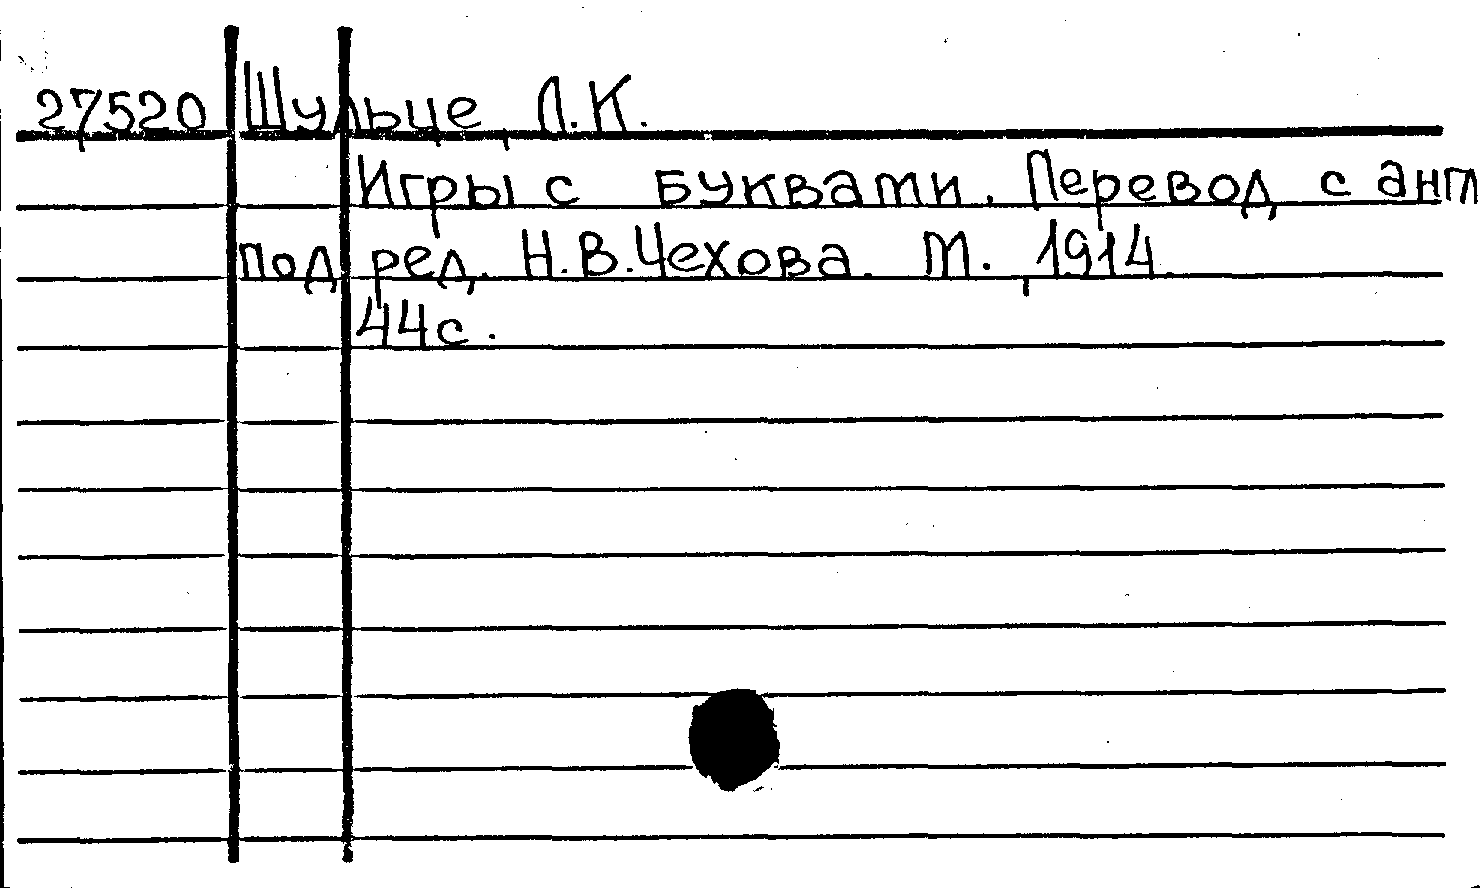 27520 Шульце, Л.К.
Игры с буквами. Перевод с англ
под ред. Н.В.Чехова. М., 1914.
44с.